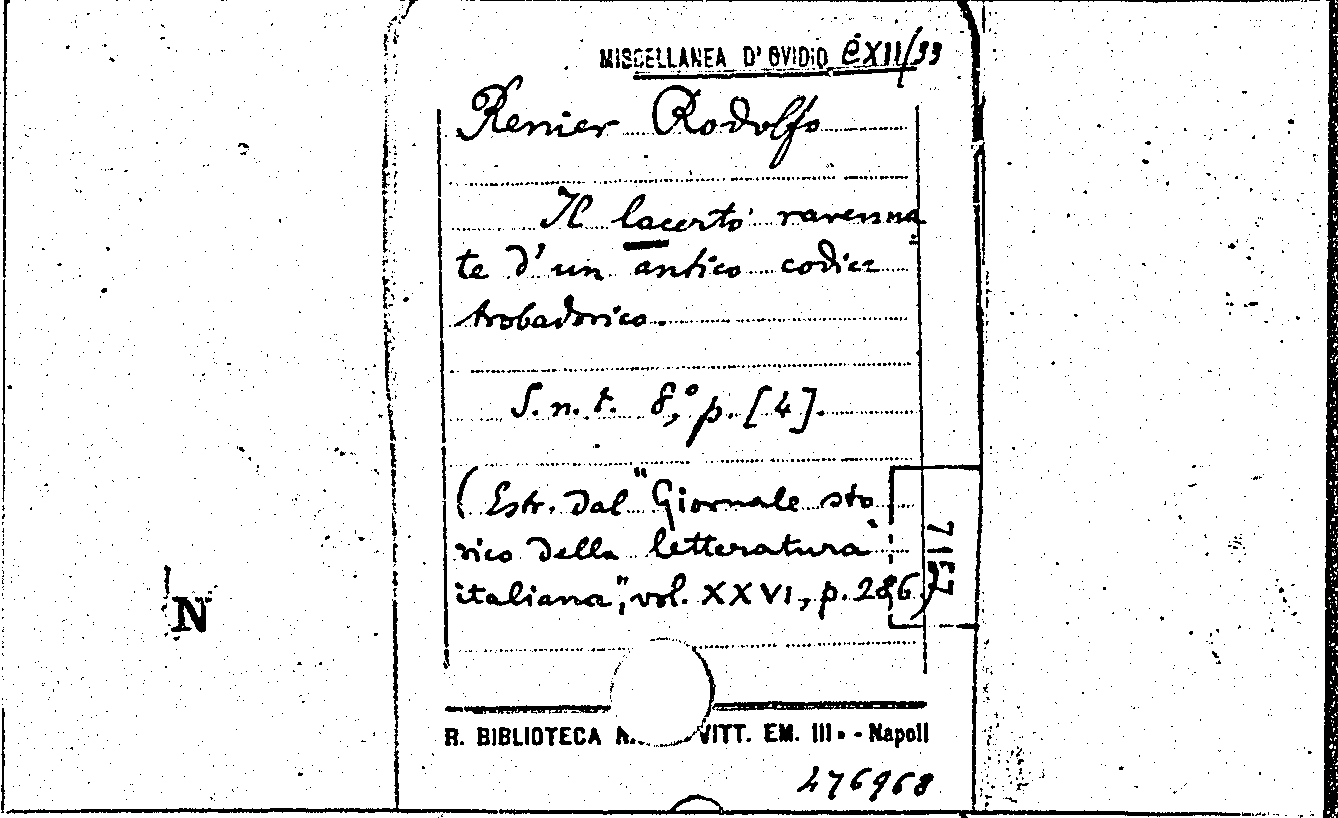 MISCELLANEA D' OVIDIO CXII/33
Renier Rodolfo
Il lacerto ravenna
te d'un antico codice
trobadorico.
S. n. t. 8,° p. [4].
(Estr. dal "Giornale sto
rico della letteratura
italiana", vol. XXVI, p. 286)
N
R. BIBLIOTECA VITT. EM. III - Napoli
476968